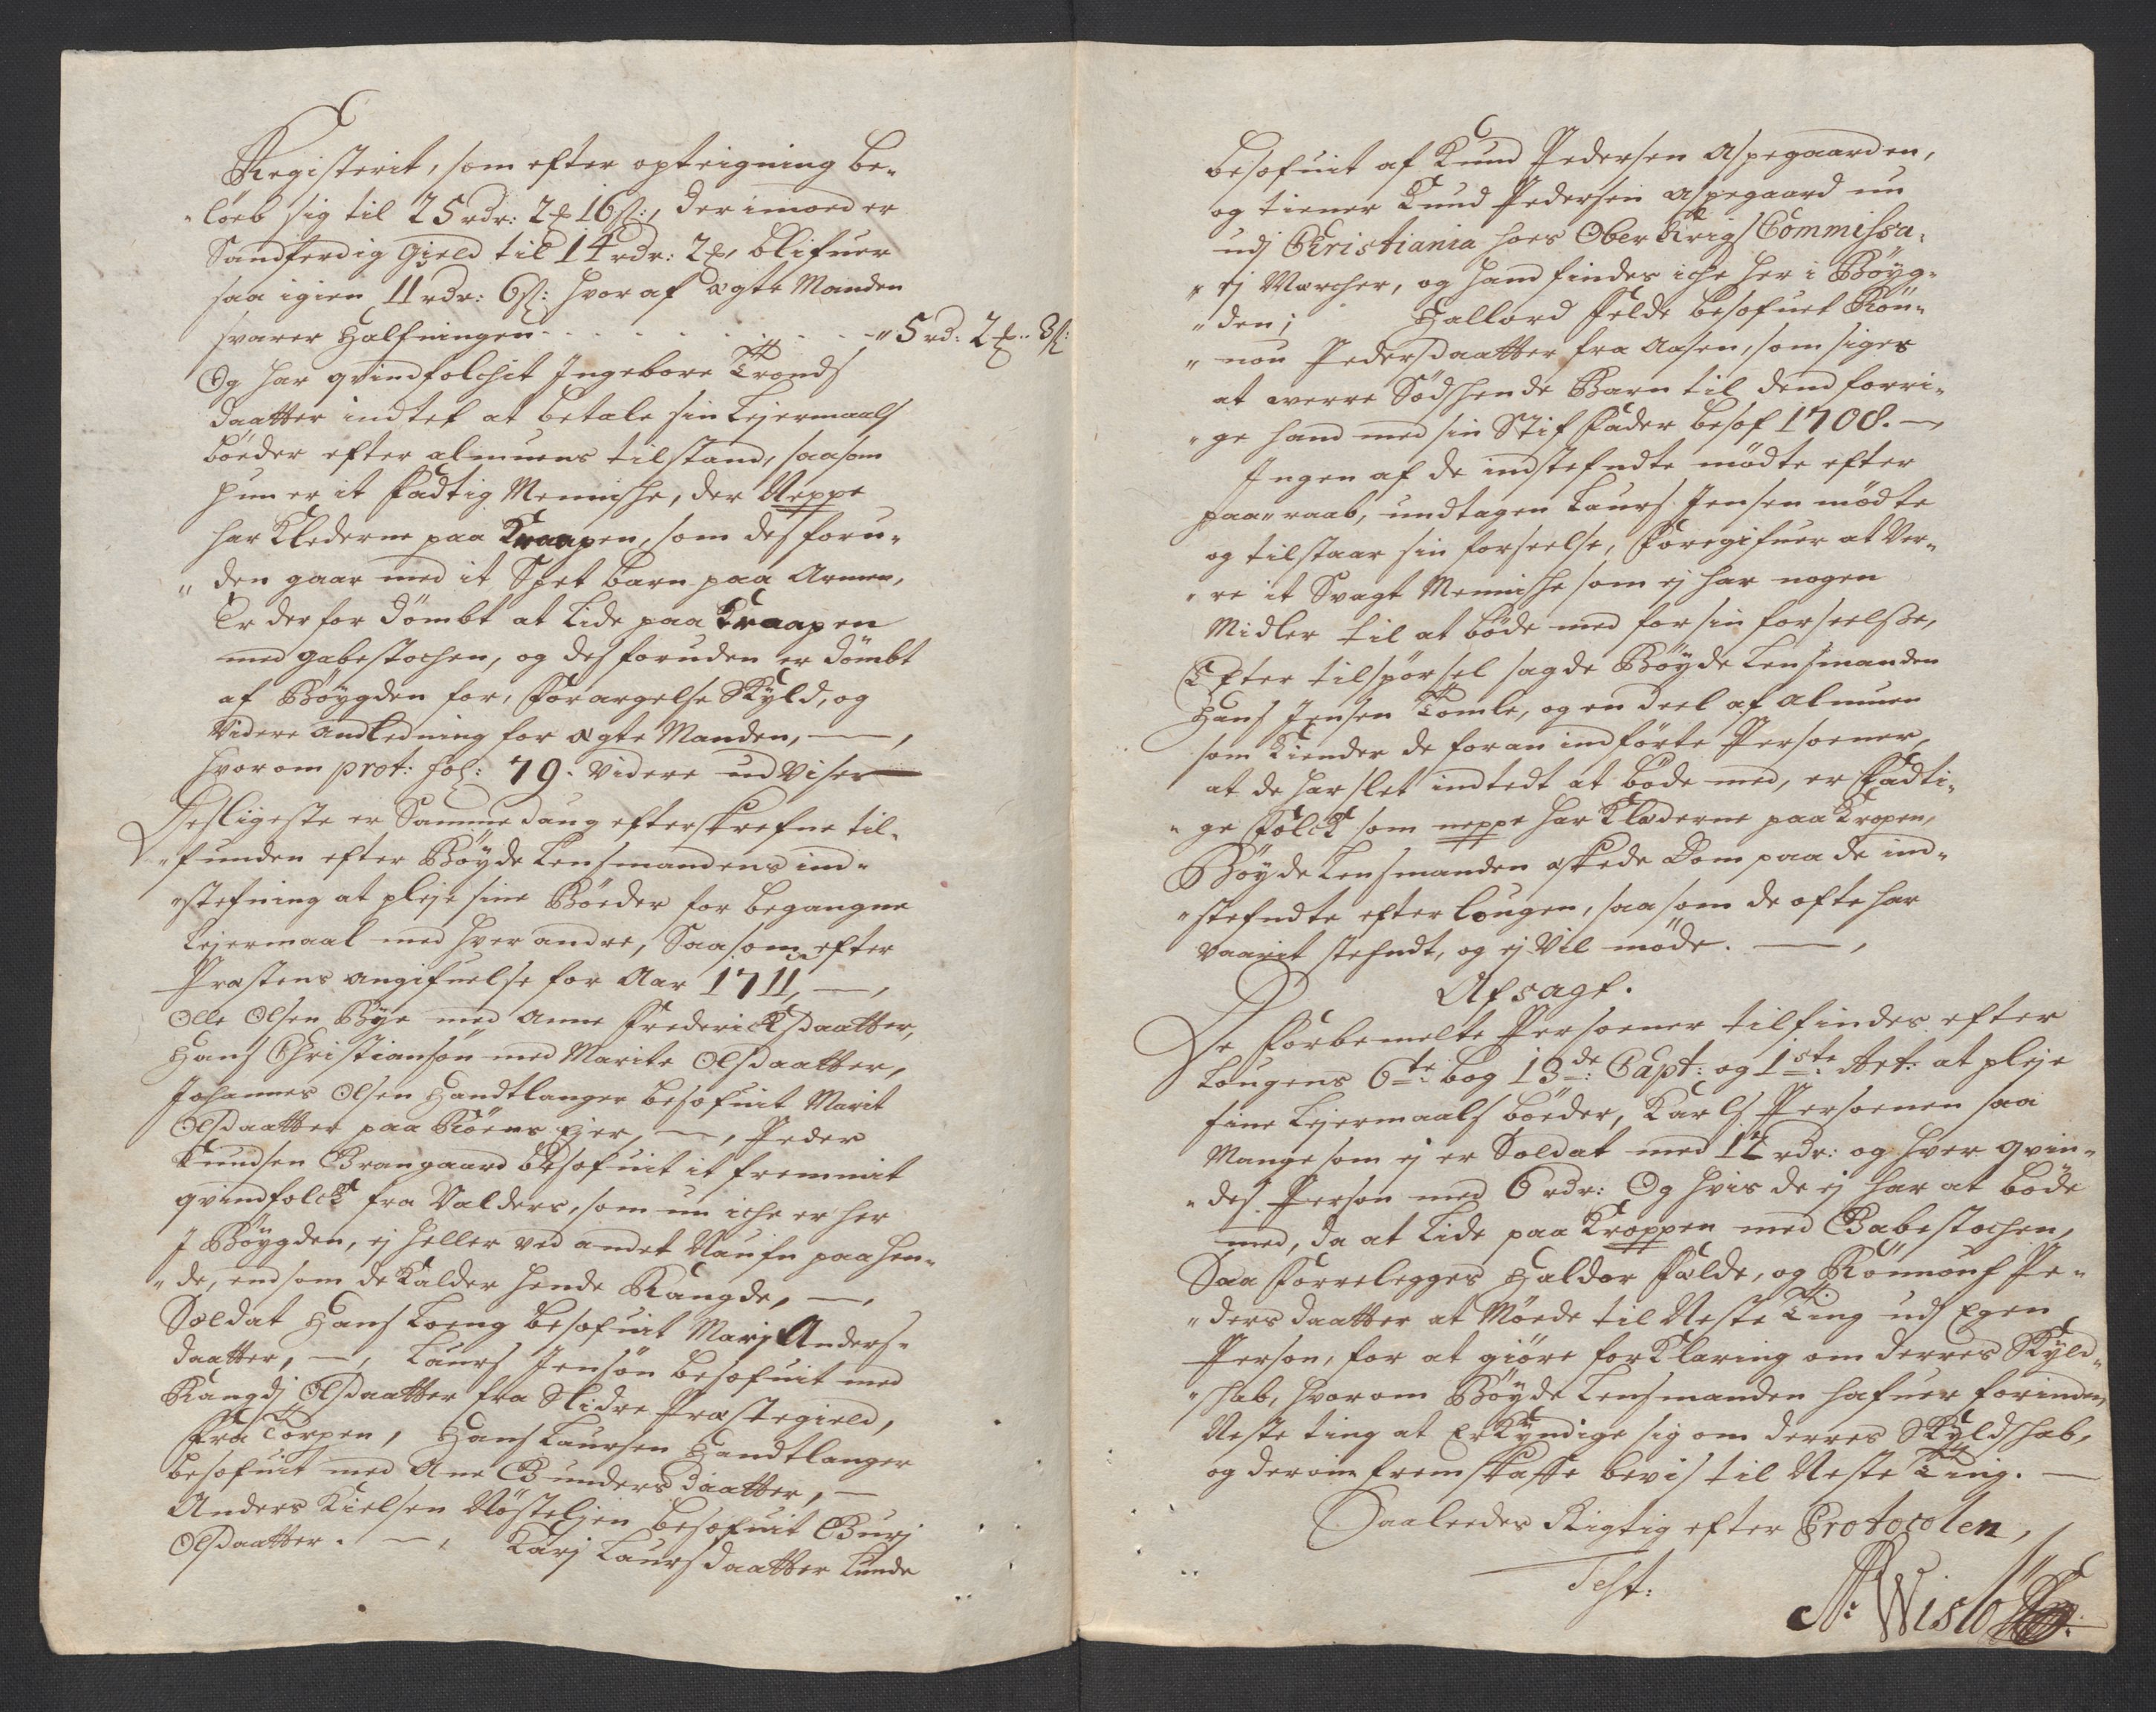 Registerit, som efter opteigning be„
„löeb sig til 25 rdr: 2 ℔ 16 ß:, der imoed er
Sandferdig gield til 14 rdr: 2 ℔, blifuer
saa igien 11 rdr: 6 ß: hvor af ægte Manden
svarer Halfningen - - - - - - - „ 5 rd: 2 ℔ „ 3 ß:
Og har qvindfolchit Ingebore Tronds
daatter indtet at betale sin Lejermaals
böeder efter almuens tilstand, saasom
hun er it fadtig Mennishe, der Neppe
har Klederne paa Kraapen, som desforu„
„den gaar med it Spet barn paa Armen,
Er derfor dömbt at Lide paa Kraapen
med gabestochen, og desforuden er dömbt
af Böygden for, Forargelse Skyld, og
Videre andledning for ægte Manden, —,
hvorom prot: fol: 79. Videre ud Viser —
Desligeste er Samme daug efterskrefne til„
„funden efter Böyde Lensmandens ind„
„stefning at pleje sine Böeder for begangne
Lejermaal med hver andre, Saasom efter
Præstens angifuelse for Aar 1711, —,
Olle Olsen Bye med Anne Fredericksdaatter,
Hans Christiansön med Marite Olsdaatter,
Johannes Olsen Handtlanger besofuit Marit
Olsdaatter paa Röens Ejer, —, Peder
Knudsen Brangaard besofuit it fremmit
qvindfolck fra Valders, som nu iche er her
J Böygden, ej heller ved andet Naufn paa hen„
„de, end som de Kalder hende Rangde, —,
Soldat Hans Loeng besofuit Marj Anders„
daatter, —, Laurs Jensön besofuit med
Rangdj Olsdaatter fra Slidre Præstegield,
fra Torpen, Hans Laursen Handtlanger
besofuit med Ane Gunders daatter, —
Anders Kielsen Nösteljen besofuit Gurj
Olsdaatter. —, Karj Laursdaatter Lunde
besofuit af Knud Pedersen Aspegaarden,
og tiener Knud Pedersen Aspegaard nu
udj Christiania hoes Ober Krigs Commissa„
„rj Marcher, og hand findes iche her i Böyg„
„den; Hallord Felde besofuet Rön„
„nou Pedersdaatter fra Aasen, som siges
at werre Södshende Barn til dend forri„
„ge hand med sin Stif Fader besof 1708. —
Ingen af de indstefndte mödte efter
paaraab, undtagen Laurs Jensen mödte
og tilstaar sin forseelse, Foregifuer at Ver„
„re it Svagt Mennishe som ej har nogen
Midler til at böde med for sin forseelsse,
Efter tilspörsel sagde Böyde Lensmanden
Hans Jensen Tomle, og en deel af Almuen
som Kiender de foran indförte Persoener,
at de har slet indtedt at böde med, er Fadti„
„ge Folck som neppe har Klæderne paa Kropen,
Böyde Lensmanden æskede Dom paa de ind„
„stefndte efter Lougen, saasom de ofte har
Vaarit stefndt, og ej Vil möde. —,
Afsagt.
De Forbemelte Persoener tilfindes efter
Lougens 6te bog 13de: Capt: og 1ste Art: at pleje
sine Lejermaals böeder, Karls Persoenen saa
Mange som ej er Soldat med 12 rdr: og hver qvin„
„des Person med 6 rdr: Og hvis de ej har at böde
med, da at Lide paa Kroppen med Gabestochen,
Saa Forrelegges Haldor Felde, og Rönnouf Pe„
„ders daatter at Möede til Neste Ting udj Egen
Person, for at giöre forKlaring om derres Skyld„
„shab, hvorom Böyde Lensmanden hafuer forinden
Neste ting at ErKyndige sig om derres Skyldshab,
og derom fremskaffe bevis til Neste Ting. —
Saaleedes Rigtig efter Protocolen,
Test: